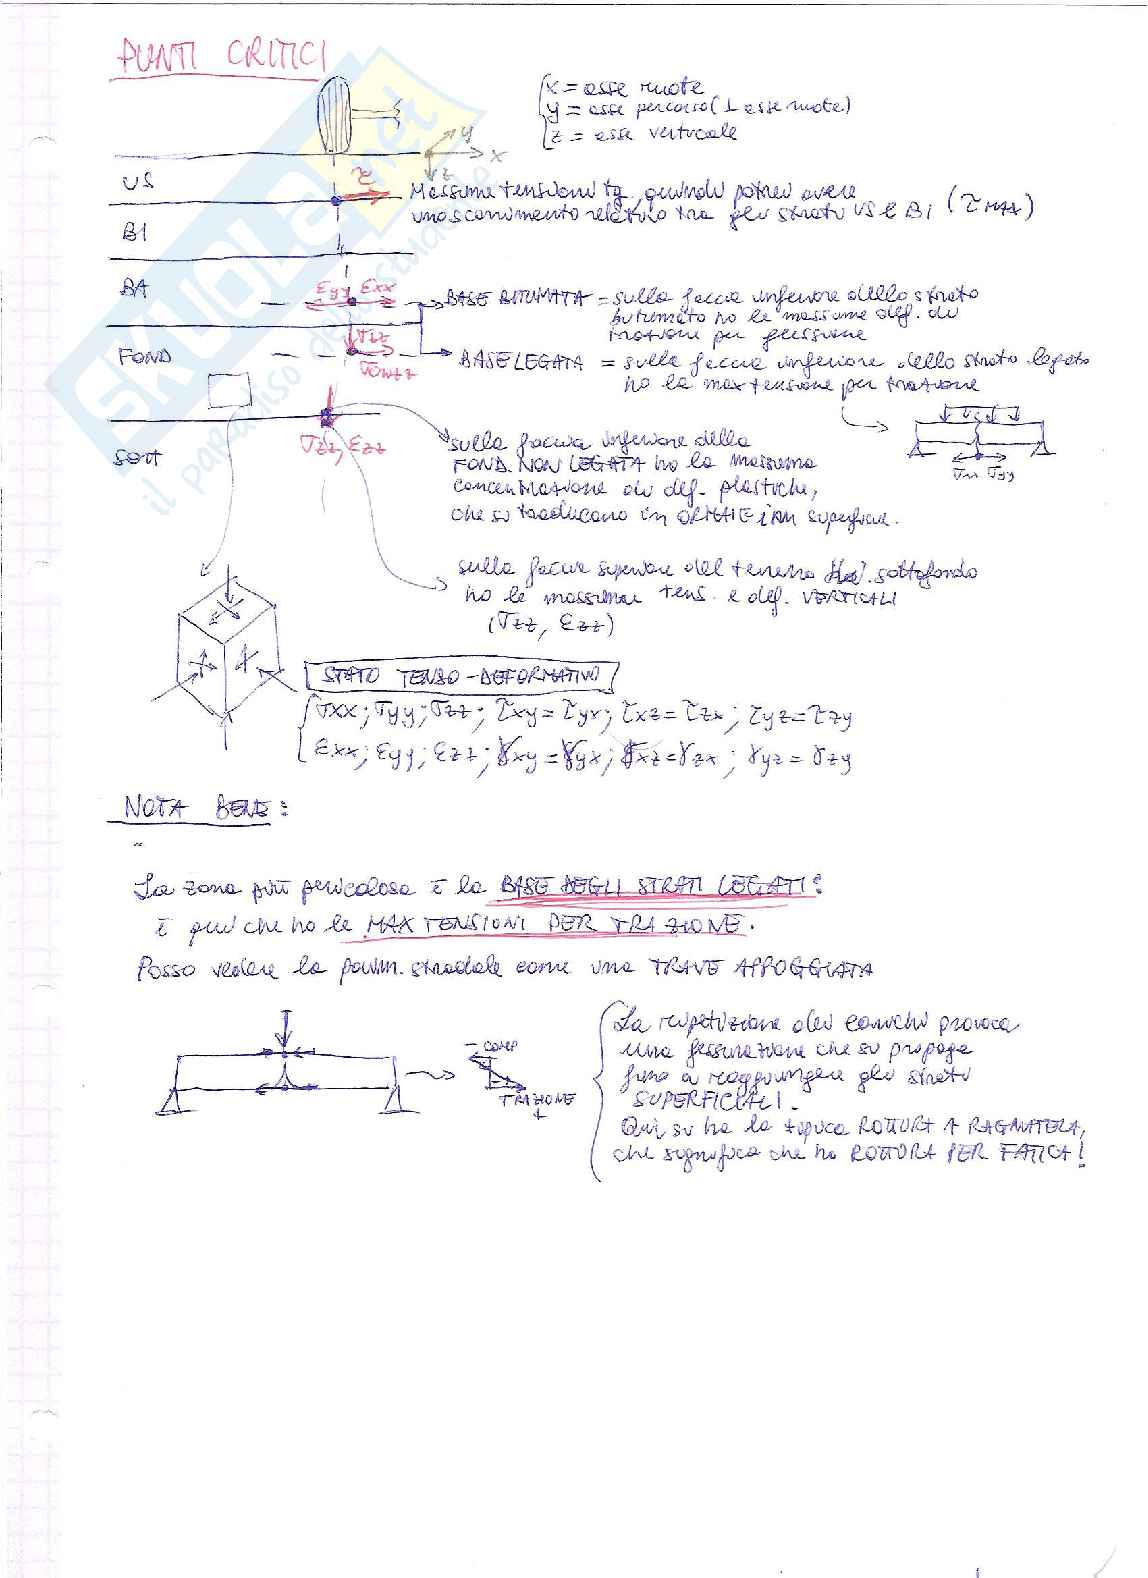 PUNTI CRITICI
x = asse ruote
y = asse percorso (⊥ asse ruote)
z = asse verticale
y
x
z
US
τ
Massime tensioni tg, quindi potrei avere
uno scorrimento relativo tra gli strati US e BI (τ MAX)
BI
BA
εyy εxx
BASE BITUMATA = sulla faccia inferiore dello strato
bitumato ho le massime def. di
trazione per flessione
FOND
BASE LEGATA = sulla faccia inferiore dello strato legato
ho la max tensione per trazione
σzz, εzz
SOTT
sulla faccia inferiore della
FOND. NON LEGATA ho la massima
concentrazione di def. plastiche,
che si traducono in ORMAIE in superficie.
σyy
sulla faccia superiore del terreno di sottofondo
ho le massime tens. e def. VERTICALI
(σzz, εzz)
STATO TENSO-DEFORMATIVO
σxx; σyy; σzz; τxy = τyx; τxz = τzx; τyz = τzy
εxx; εyy; εzz; γxy = γyx; γxz = γzx; γyz = γzy
NOTA BENE:
La zona più pericolosa è la BASE DEGLI STRATI LEGATI:
è qui che ho le MAX TENSIONI PER TRAZIONE.
Posso vedere la pavim. stradale come una TRAVE APPOGGIATA
- COMP
TRAZIONE
+
La ripetizione dei carichi provoca
una fessurazione che si propaga
fino a raggiungere gli strati
SUPERFICIALI.
Qui si ha la tipica ROTTURA A RAGNATELA,
che significa che ho ROTTURA PER FATICA!
SKUOLA.net
il paradiso dello studente